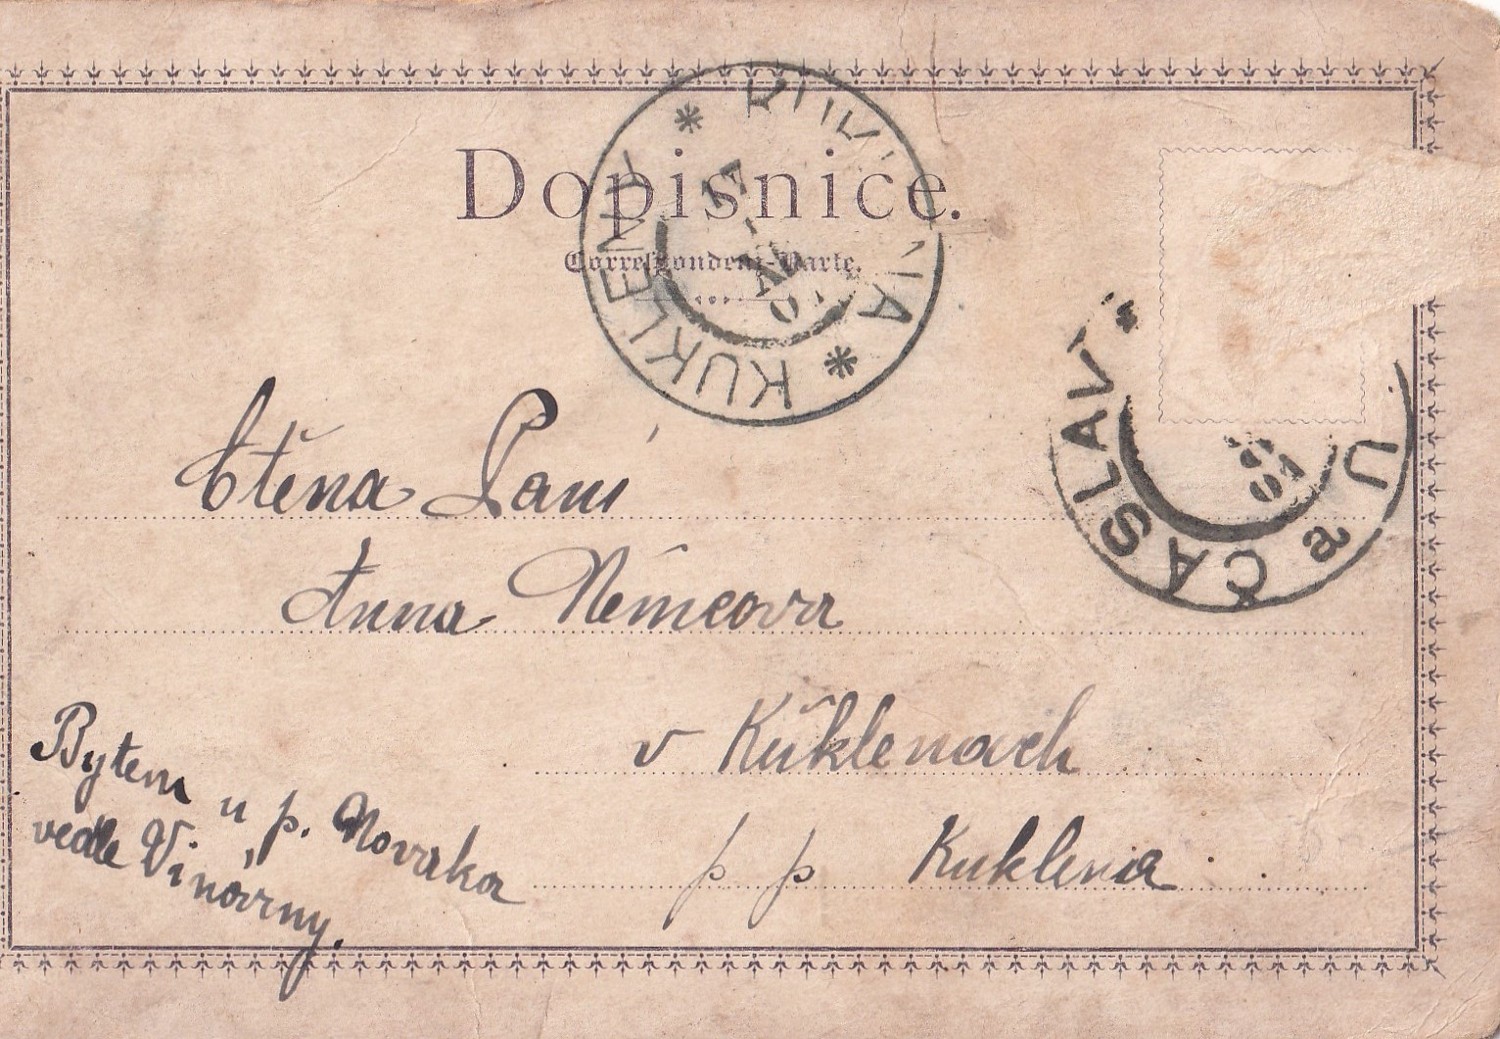 Dopisnice.
Correspondenz-Karte.
KUKLENY
17
ČÁSLAV
Ctěna Paní
Anna Němcova
v Kŭklenach
p p Kuklena
Bytem u p. Novaka
vedle Vinárny.